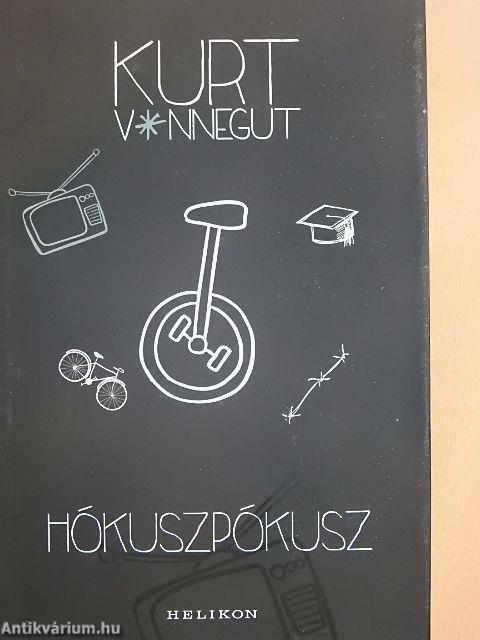 KURT
V*NNEGUT
HÓKUSZPÓKUSZ
HELIKON
Antikvárium.hu